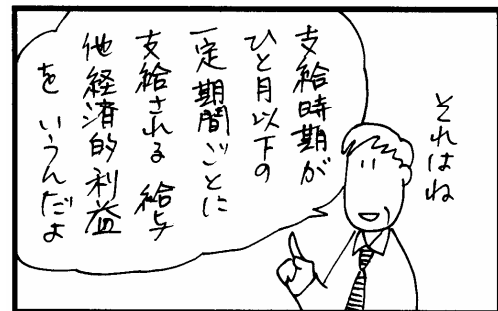 それはね
支給時期が
ひと月以下の
一定期間ごとに
支給される 給与
他経済的利益
をいうんだよ